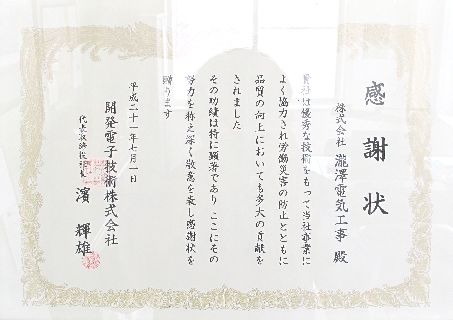 感謝状
株式会社 瀧澤電気工事 殿
貴社は優秀な技術をもって当社事業に
よく協力され労働災害の防止とともに
品質の向上においても多大の貢献を
されました
その功績は特に顕著であり ここにその
努力を称え深く敬意を表し感謝状を
贈ります
平成二十一年七月一日
開発電子技術株式会社
代表取締役社長 濱 輝雄